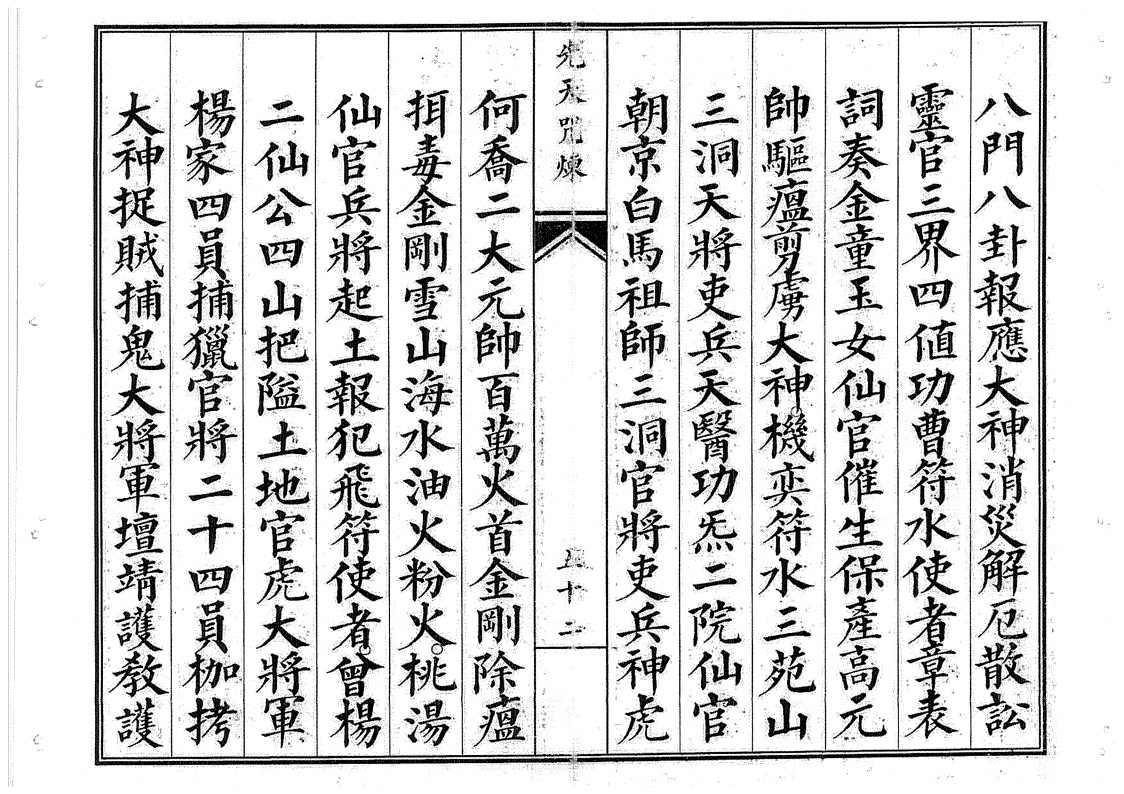 八門八卦報應大神消災解厄散訟
靈官三界四値功曹符水使者章表
詞奏金童玉女仙官催生保產高元
帥驅瘟剪虜大神機奕符水三苑山
三洞天將吏兵天醫功炁二院仙官
朝京白馬祖師三洞官將吏兵神虎
先天咒煉
五十二
何喬二大元帥百萬火首金剛除瘟
毒金剛雪山海水油火粉火桃湯
仙官兵將起土報犯飛符使者曾楊
二仙公四山把隘土地官虎大將軍
楊家四員捕獵官將二十四員枷拷
大神捉賊捕鬼大將軍壇靖護教護